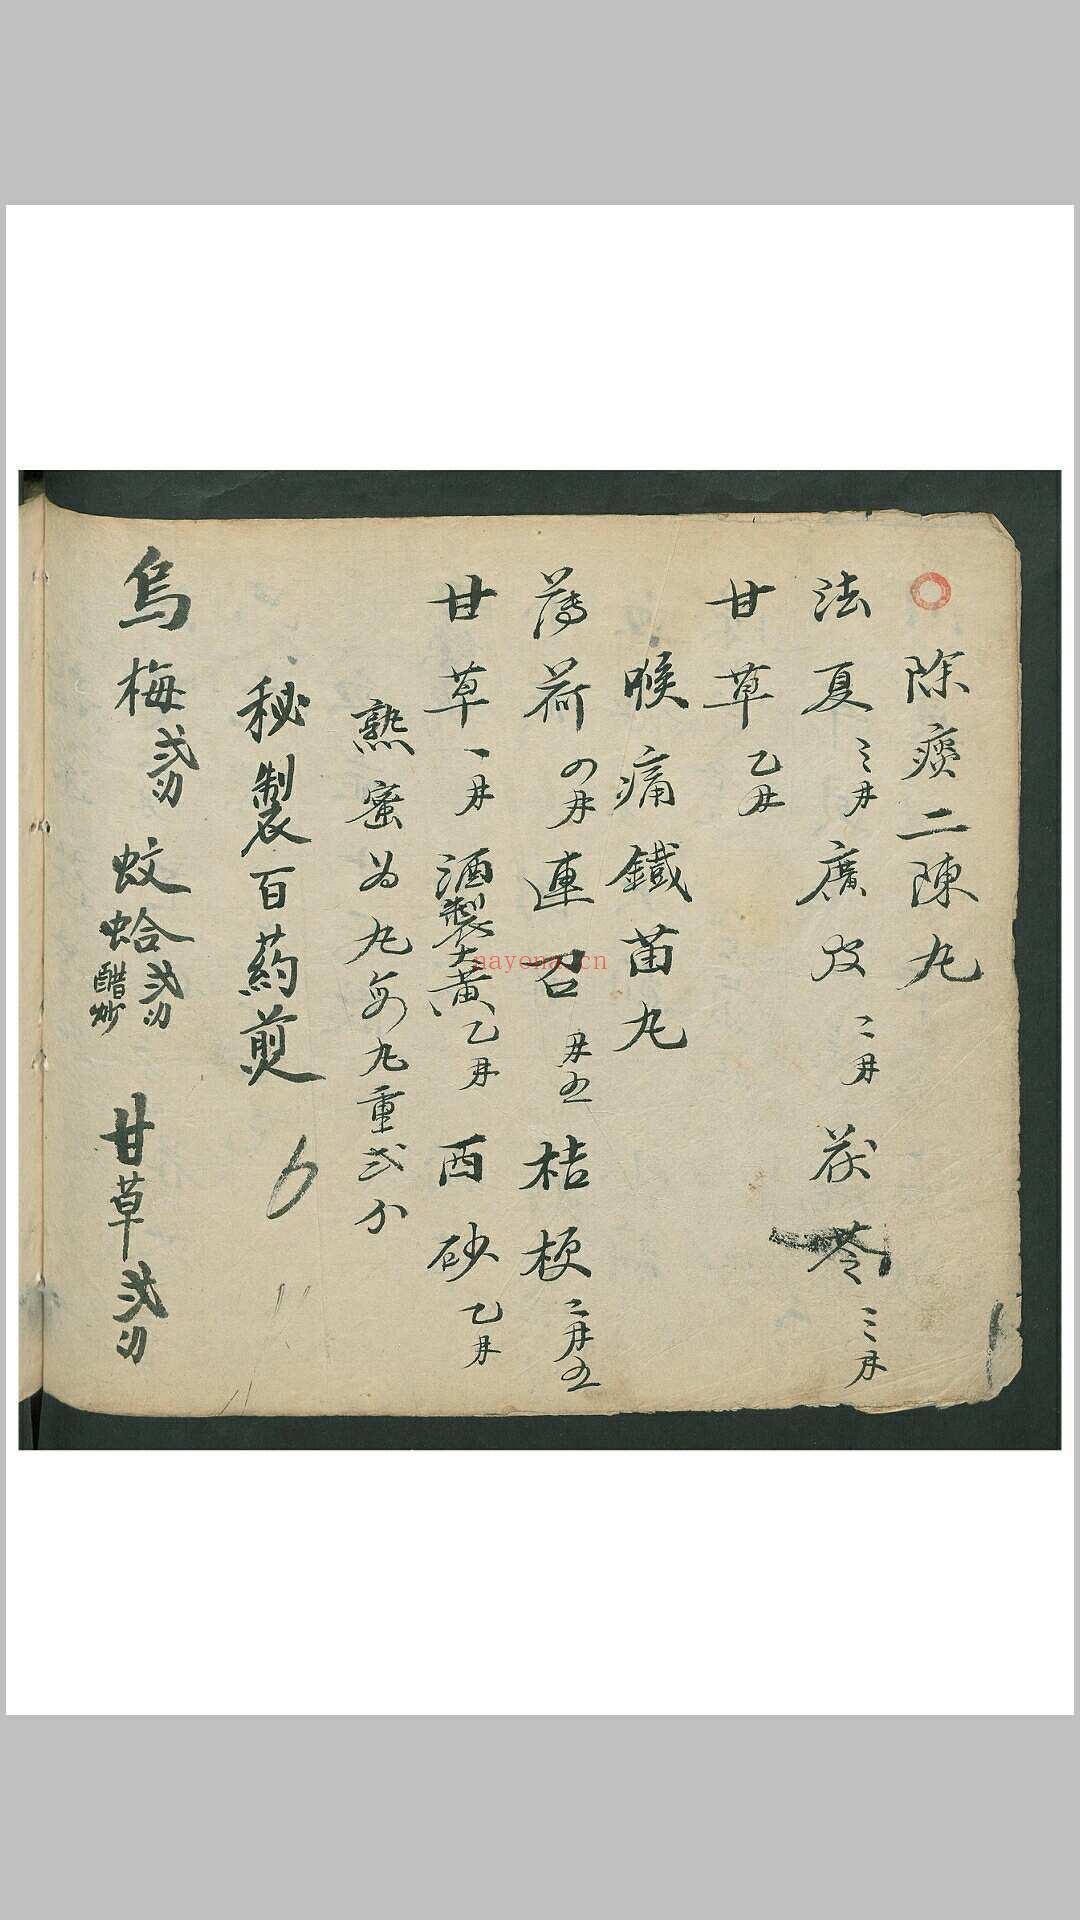 除痰二陳丸
法夏三両廣皮二両茯苓三両
甘草乙両
喉痛鐵笛丸
薄荷四両連召両五桔梗二両五
甘草一両酒製大黄乙両西砂乙両
熟蜜為丸每丸重弍分
秘製百药煎
烏梅弍刃蚊蛤弍刃醋炒甘草弍刃
nayona.cn